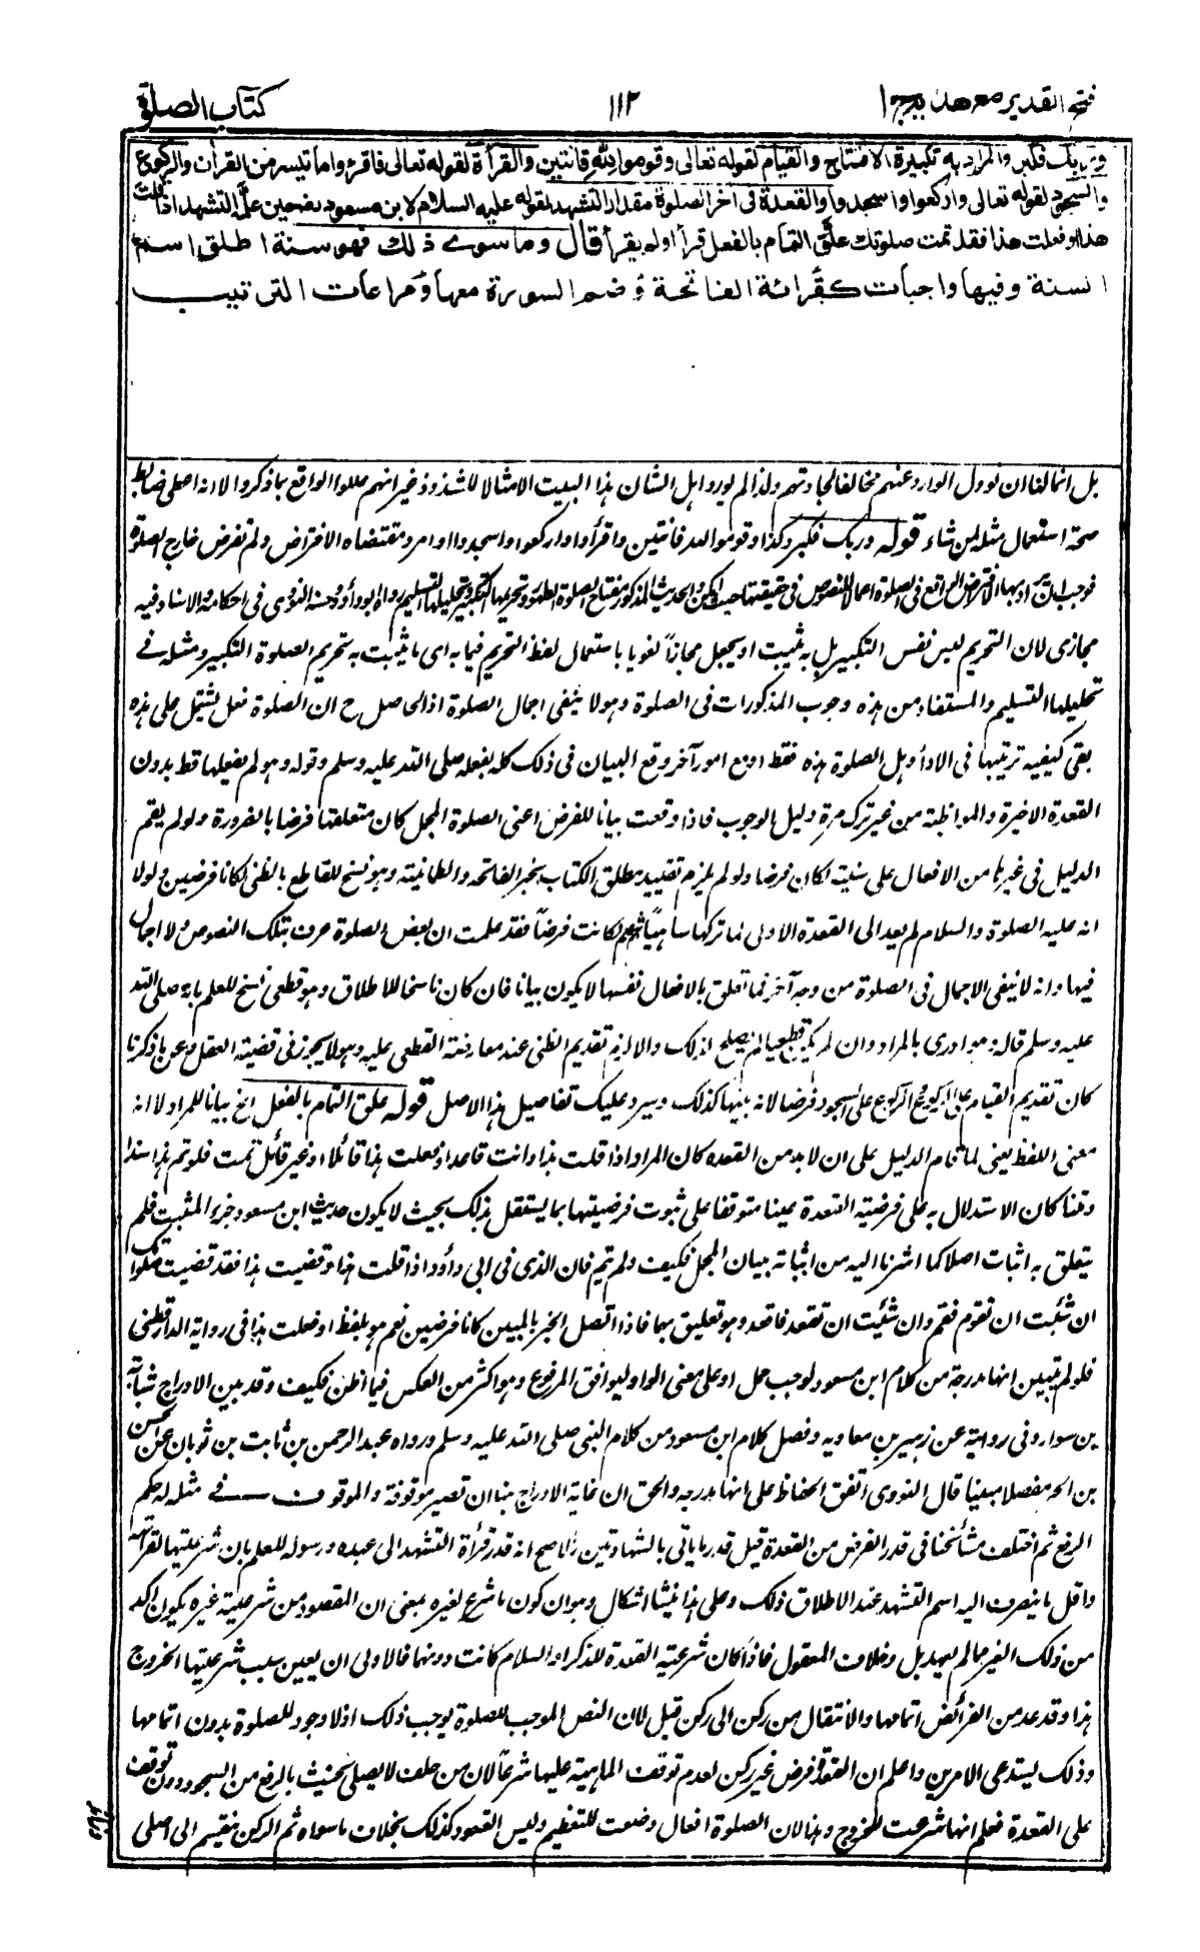 فتح القدير مع هدايه ج ١
١١٢
كتاب الصلوة
وربك فكبر والمراد به تكبيرة الافتتاح والقيام لقوله تعالى وقوموا لله قانتين والقرأة لقوله تعالى فاقرؤا ما تيسر من القرأن والركوع
والسجود لقوله تعالى واركعوا واسجدوا والقعدة فى اخر الصلوة مقدار التشهد لقوله عليه السلام لابن مسعود رضـ حين علمه التشهد اذا قلت
هذا او فعلت هذا فقد تمت صلوتك علق التمام بالفعل قرأ او لم يقرأ قال وما سوے ذلك فهو سنة اطلق اسم
السنة وفيها واجبات كقرائة الفاتحة وضم السورة معها ومراعات الترتيب
بل انما لنا ان نوول الوارد عنهم مخالفا لجادتهم ولذا لم يورد اهل الشان هذا البيت الا مثالا للشذوذ غير انهم عللوا الواقع بما ذكروا لا انه اعطى ضابط
صحة استعمال مثله لمن شاء قوله وربك فكبر وكذا وقوموا لله قانتين واقرأوا واركعوا واسجدوا اوامر ومقتضاه الافتراض ولم تفرض خارج الصلوة
فوجب ان يراد بها الافتراض الواقع فى الصلوة اعمالا للنصوص فى حقيقتها حيث امكن والحديث المذكور مفتاح الصلوة الطهور وتحريمها التكبير وتحليلها التسليم رواه ابو داؤد وحسنه النووى فى احكامه والاسناد فيه
مجازى لان التحريم ليس نفس التكبير بل به يثبت او يجعل مجازاً لغويا باستعمال لفظ التحريم فيما به اى ما يثبت به تحريم الصلوة التكبير ومثله فے
تحليلها التسليم والمستفاد من هذه وجوب المذكورات فى الصلوة وهو لا ينفى اجمال الصلوة اذ الحاصل ح ان الصلوة فعل يشتمل على هذه
بقى كيفيه ترتيبها فى الاداء وهل الصلوة هذه فقط او مع امور آخر وقع البيان فى ذلك كله بفعله صلى الله عليه وسلم وقوله وهو لم يفعلها قط بدون
القعدة الاخيرة والمواظبة من غير ترك مرة دليل الوجوب فاذا وقعت بيانا للفرض اعنى الصلوة المجمل كان متعلقها فرضا بالضرورة ولو لم يقم
الدليل فى غيرها من الافعال على سنيته لكان فرضا ولو لم يلزم تقييد مطلق الكتاب بخبر الفاتحه والطمانينة وهو نسخ للقاطع بالظنى لكانا فرضين ولولا
انه عليه الصلوة والسلام لم يعد الى القعدة الاولى لما تركها ساهيا ثم علم لكانت فرضاً فقد علمت ان بعض الصلوة عرف بتلك النصوص ولا اجمال
فيها وانه لا ينفى الاجمال فى الصلوة من وجه آخر فما تعلق بالافعال نفسها لا يكون بيانا فان كان ناسخا للاطلاق وهو قطعى نسخ للعلم بانه صلى الله
عليه وسلم قاله وهو ادرى بالمراد وان لم يكن قطعيا لم يصلح لذلك والا لزم تقديم الظنى عند معارضته القطعى عليه وهو لا يجوز فى قضيته العقل وعن ما ذكرنا
كان تقديم القيام على الركوع والركوع على السجود فرضا لانه بينها كذلك وسيرد عليك تفاصيل هذا الاصل قوله علق التمام بالفعل الخ بيانا للمراد لا انه
معنى اللفظ يعنى لما قام الدليل على ان لا بد من القعده كان المراد اذا قلت هذا وانت قاعد او فعلت هذا قائلا او غير قائل تمت فلو تم هذا سندا
ومتنا كان الاستدلال به على فرضيته القعدة عينا متوقفا على ثبوت فرضيتها بما يستقل بذلك بحيث لا يكون حديث ابن مسعود جزء المثبت فلم
يتعلق به اثبات اصلا كما اشرنا اليه من اثباته ببيان المجمل فكيف ولم يتم فان الذى فى ابى داؤد اذا قلت هذا او قضيت هذا فقد قضيت صلوتك
ان شئت ان تقوم فقم وان شئت ان تقعد فاقعد وهو تعليق بهما فاذا اتصل الخبر بالمبين كانا فرضين نعم هو بلفظ او فعلت هذا فى رواية الدارقطنى
فلو لم يتبين انها مدرجة من كلام ابن مسعود لوجب حمل او على معنى الواو ليوافق المرفوع وهو اكثر من العكس فيما اظن فكيف وقد بين الادراج شبابة
بن سوار فى روايته عن زهير بن معاويه وفصل كلام ابن مسعود من كلام النبى صلى الله عليه وسلم ورواه عبد الرحمن بن ثابت بن ثوبان عن الحسن
بن الحر مفصلا مبينا قال النووى اتفق الحفاظ على انها مدرجه والحق ان غاية الادراج هنا ان تصير موقوفة والموقوف فے مثله له حكم
الرفع ثم اختلف مشائخنا فى قدر الفرض من القعدة قيل قدر ما ياتى بالشهادتين والاصح انه قدر قرأة التشهد الى عبده ورسوله للعلم بان شرعيتها لقرأته
واقل ما ينصرف اليه اسم التشهد عند الاطلاق ذلك وعلى هذا ينشأ اشكال وهو ان كون ما شرع لغيره بمعنى ان المقصود من شرعيته غيره يكون اكد
من ذلك الغير مما لم يعهد بل وخلاف المعقول فاذا كان شرعية القعدة للذكر او السلام كانت دونهما فالاولى ان يعين سبب شرعيتها الخروج
هذا وقد عد من الفرائض اتمامها والانتقال من ركن الى ركن قيل لان النص الموجب للصلوة يوجب ذلك اذ لا وجود للصلوة بدون اتمامها
وذلك يستدعى الامرين واعلم ان القعدة فرض غير ركن لعدم توقف الماهية عليها شرعاً لان من حلف لا يصلى يحنث بالرفع من السجود دون توقف
على القعدة فعلم انها شرعت للخروج وهذا لان الصلوة افعال وضعت للتعظيم وليس القعود كذلك بخلاف ما سواه ثم الركن ينقسم الى اصلى